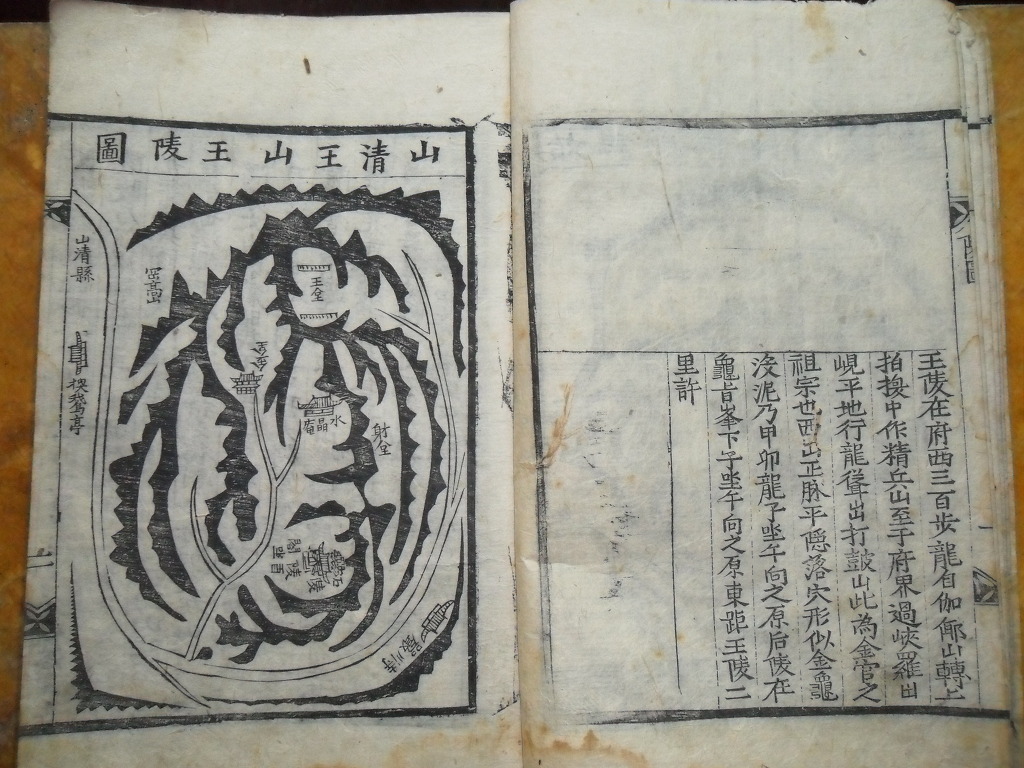 王陵在府西三百步龍自伽倻山轉上
拍換中作精兵山至于府界過峽羅出
峴平地行龍聳出打鼓山此為金官之
祖宗也西出正脉平隱落穴形似金龜
沒泥乃甲卯龍子坐午向之原后陵在
龜旨峯下子坐午向之原東距王陵二
里許
山清王山王陵圖
王
水晶
射
山清縣
換鵝亭